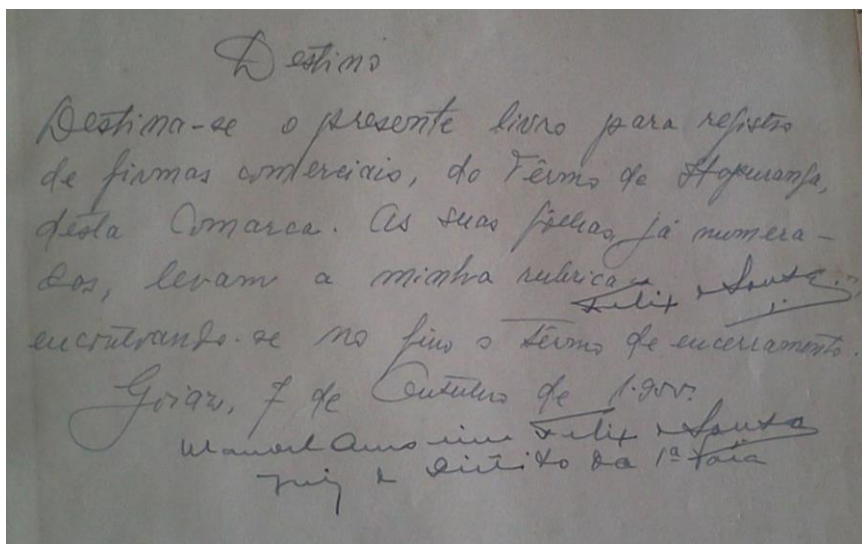 Destino
Destina-se o presente livro para registro
de firmas comerciais, do Têrmo de Itapuranga,
desta Comarca. As suas folhas, já numera-
das, levam a minha rubrica
Felix de Sousa
encontrando-se no fim o Têrmo de encerramento.
Goiaz, 7 de Outubro de
Manoel Amorim Felix de Sousa
Juiz de Direito da 1ª Vara